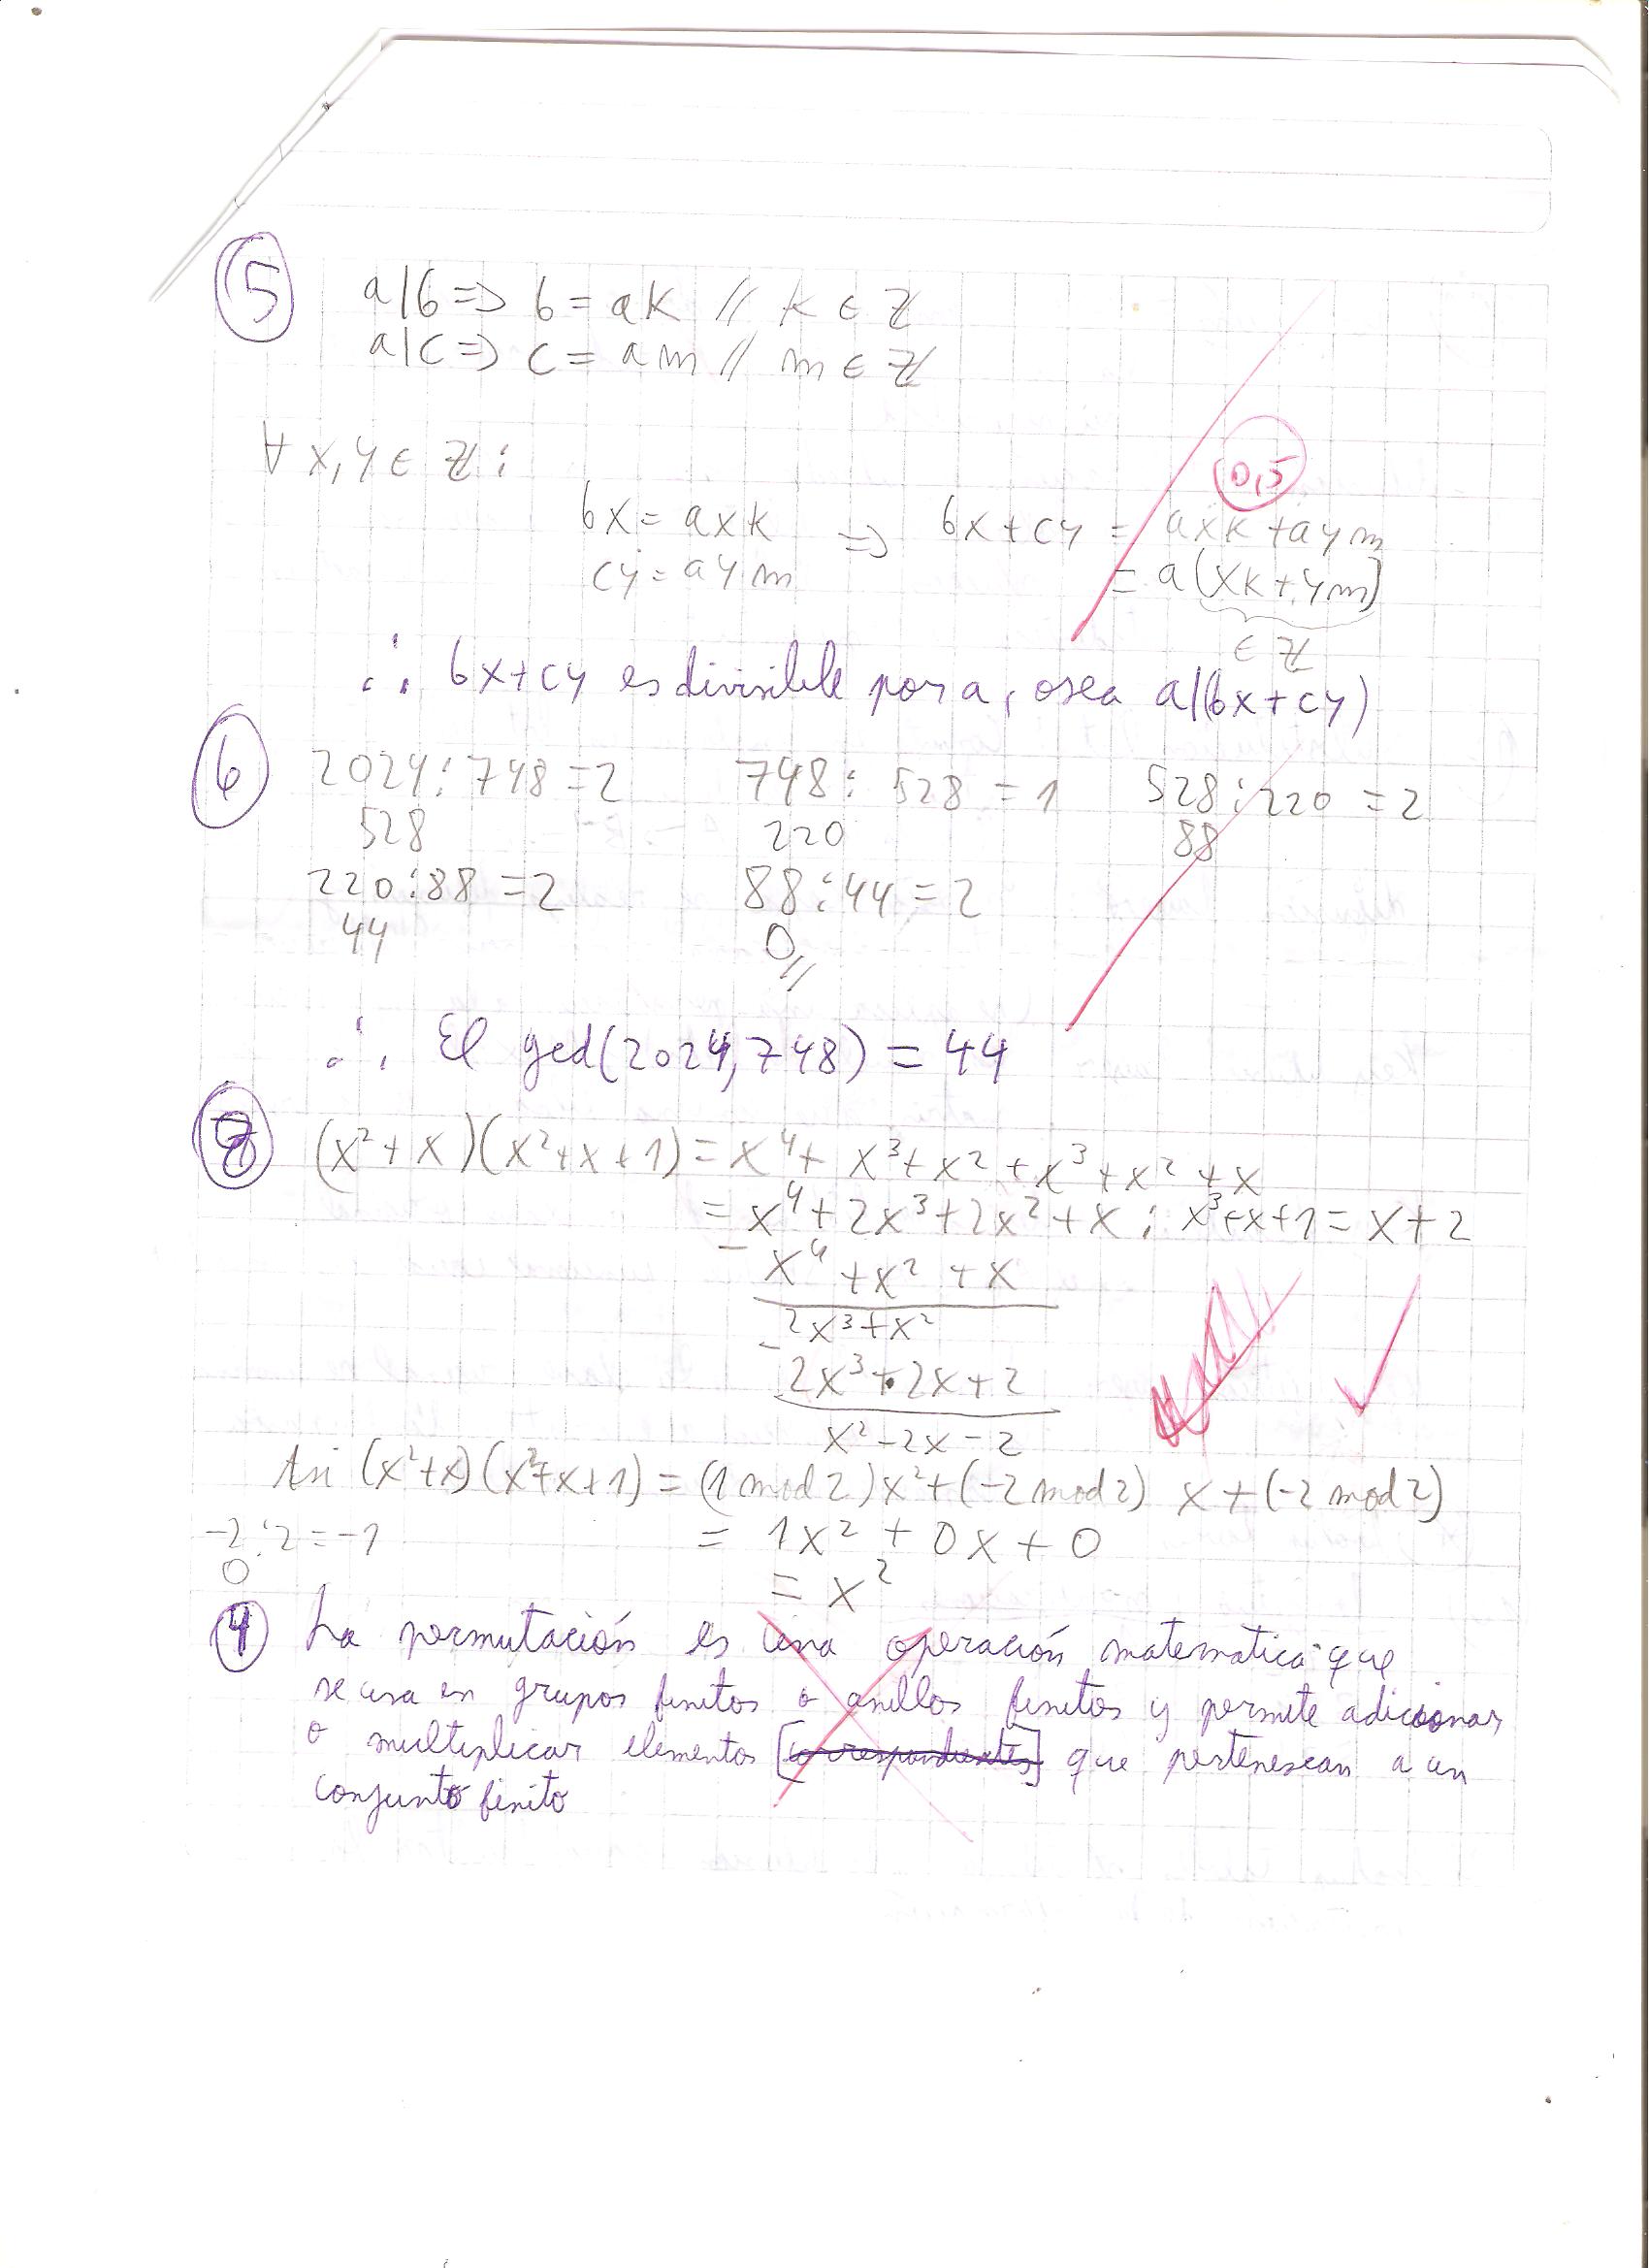 5
a|b => b = ak // k ∈ ℤ
a|c => c = am // m ∈ ℤ
∀ x, y ∈ ℤ :
0,5
bx = axk => bx + cy = axk + aym
cy = aym = a(xk + ym)
∈ ℤ
∴ bx + cy es divisible por a, osea a|(bx + cy)
6 2024 : 748 = 2 748 : 528 = 1 528 : 220 = 2
528 220 88
220 : 88 = 2 88 : 44 = 2
44 0 //
∴ El gcd(2024, 748) = 44
(x² + x)(x² + x + 1) = x⁴ + x³ + x² + x³ + x² + x
= x⁴ + 2x³ + 2x² + x : x³ + x + 1 = x + 2
- x⁴ + x² + x
2x³ + x²
- 2x³ + 2x + 2
x² - 2x - 2
Asi (x² + x)(x² + x + 1) = (1 mod 2)x² + (-2 mod 2) x + (-2 mod 2)
-2 : 2 = -1 = 1x² + 0x + 0
0 = x²
4 La permutación es una operación matematica que
se usa en grupos finitos o anillos finitos y permite adicionar
o multiplicar elementos [correspondientes] que pertenescan a un
conjunto finito